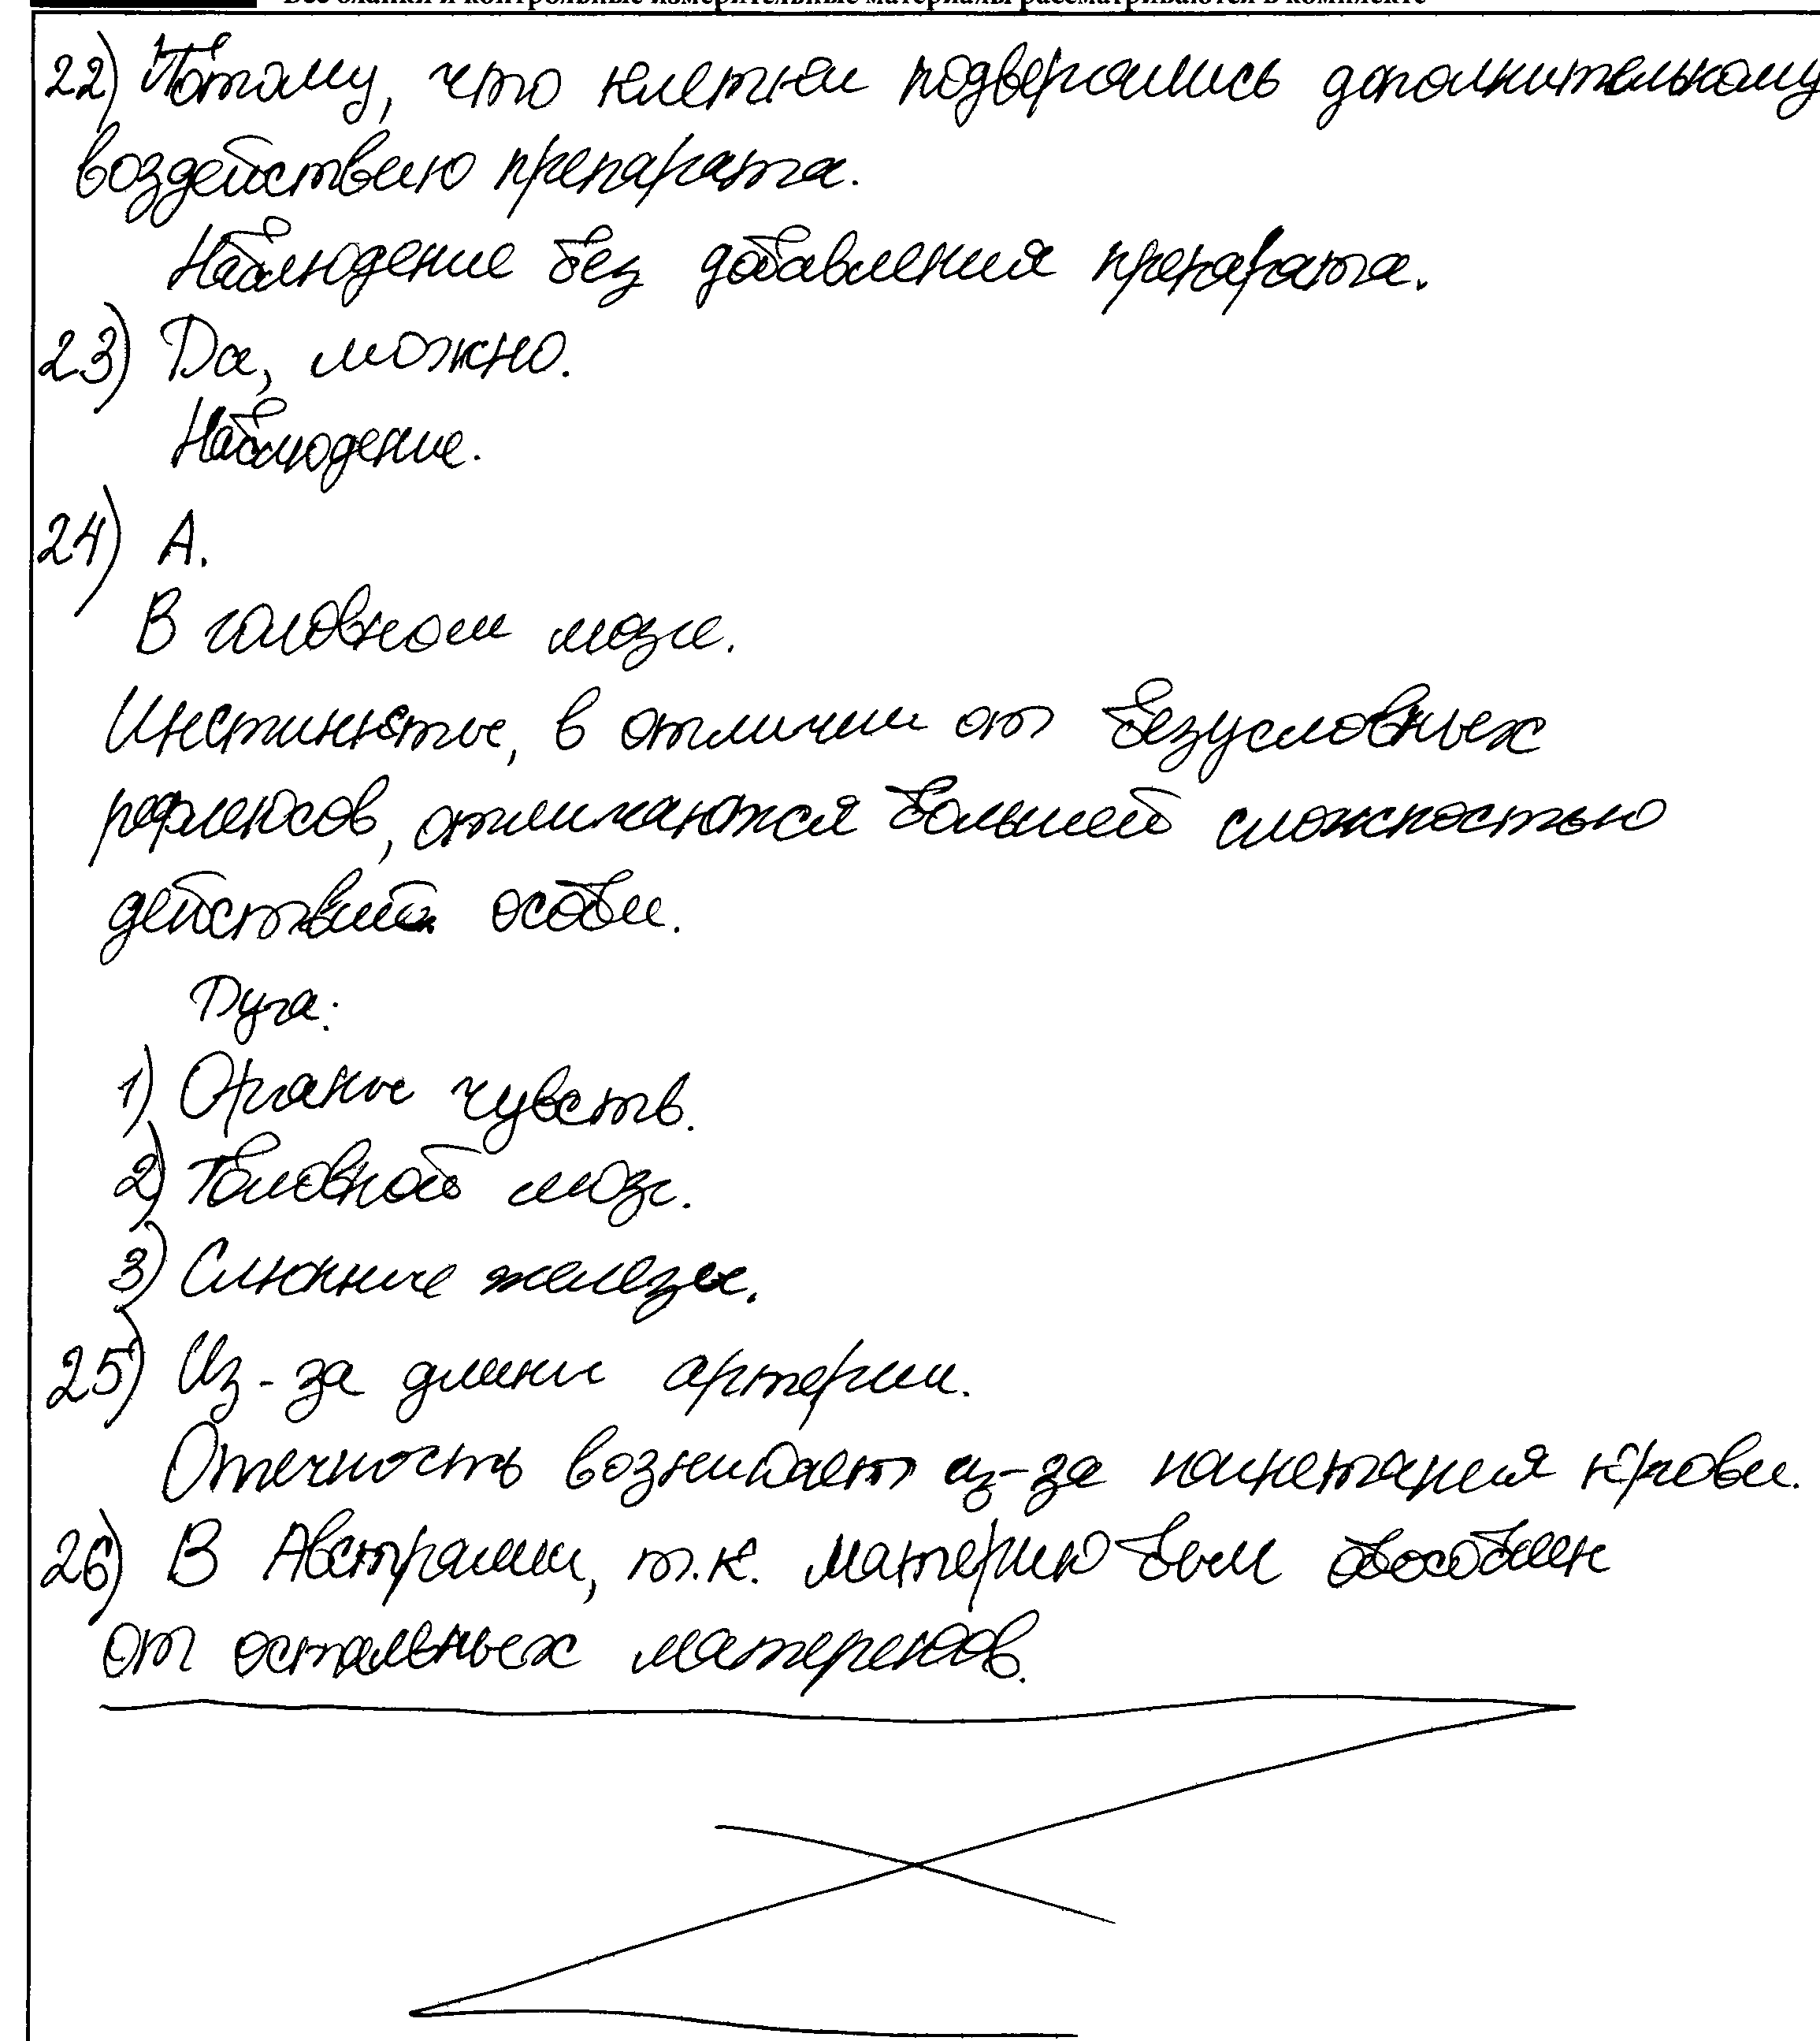 Все бланки и контрольные измерительные материалы рассматриваются в комплекте
22) Потому, что клетки подверглись дополнительному
воздействию препарата.
Наблюдение без добавления препарата.
23) Да, можно.
Наблюдение.
24) А.
В головном мозге.
Инстинкты, в отличии от безусловных
рефлексов, отличаются большей сложностью
действий особи.
Дуга:
1) Органы чувств.
2) Головной мозг.
3) Слюнные железы.
25) Из-за длины артерии.
Отечность возникает из-за нагнетания крови.
26) В Австралии, т.к. материк был обособлен
от остальных материков.